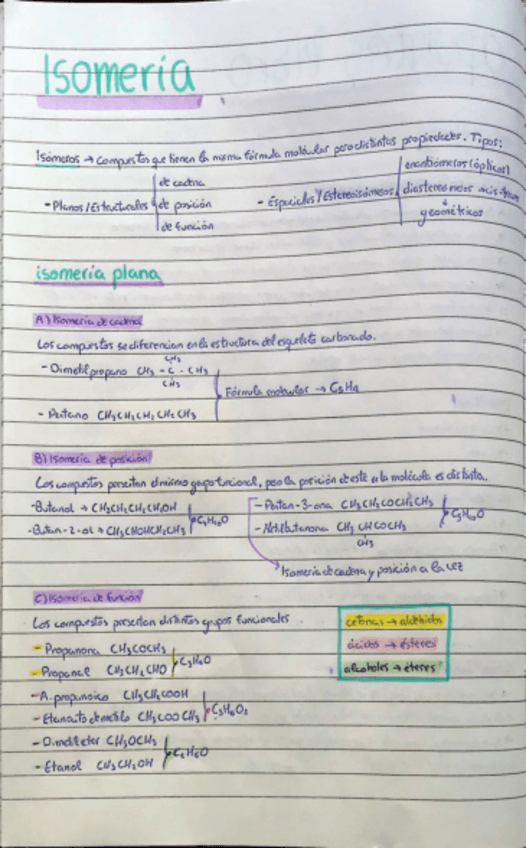 Isomería
Isómeros → compuestos que tienen la misma fórmula molecular pero distintas propiedades. Tipos:
- Planos/Estructurales
de cadena
de posición
de función
- Espaciales/Estereoisómeros
enantiómeros (ópticos)
diastereómeros
geométricos
isomería plana
A) Isomería de cadena
Los compuestos se diferencian en la estructura del esqueleto carbonado.
CH₃
- Dimetilpropano CH₃ - C - CH₃
CH₃
Fórmula molecular →
- Pentano CH₃CH₂CH₂CH₂CH₃
B) Isomería de posición
Los compuestos presentan el mismo grupo funcional, pero la posición de este en la molécula es distinta.
- Butanol → CH₃CH₂CH₂CH₂OH
- Butan-2-ol → CH₃CHOHCH₂CH₃
C₄H₁₀O
- Pentan-3-ona CH₃CH₂COCH₂CH₃
- Metilbutanona CH₃CHCOCH₃
CH₃
C₅H₁₀O
Isomería de cadena y posición a la vez
C) Isomería de función
Los compuestos presentan distintos grupos funcionales
- Propanona CH₃COCH₃
- Propanal CH₃CH₂CHO
C₃H₆O
- A. propanoico CH₃CH₂COOH
- Etanoato de metilo CH₃COOCH₃
C₃H₆O₂
- Dimetileter CH₃OCH₃
- Etanol CH₃CH₂OH
C₂H₆O
cetonas → aldehidos
ácidos → ésteres
alcoholes → éteres